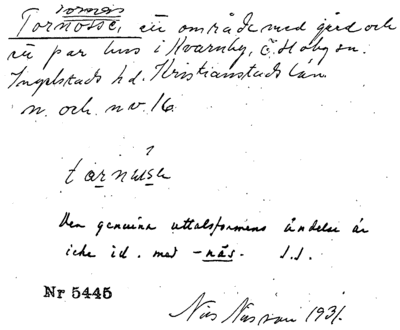 Tornosse, ett område med gård och
ett par hus i Kvarnby, Ö. Hoby sn.
Ingelstads hd. Kristianstads län.
n. och nv. 16.
Den genuina uttalsformens ändelse är
icke id. med -näs-. I.I.
Nr 5445
Nils Nilsson 1931.